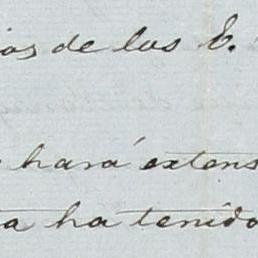 de los E.
hará extens
ha tenido